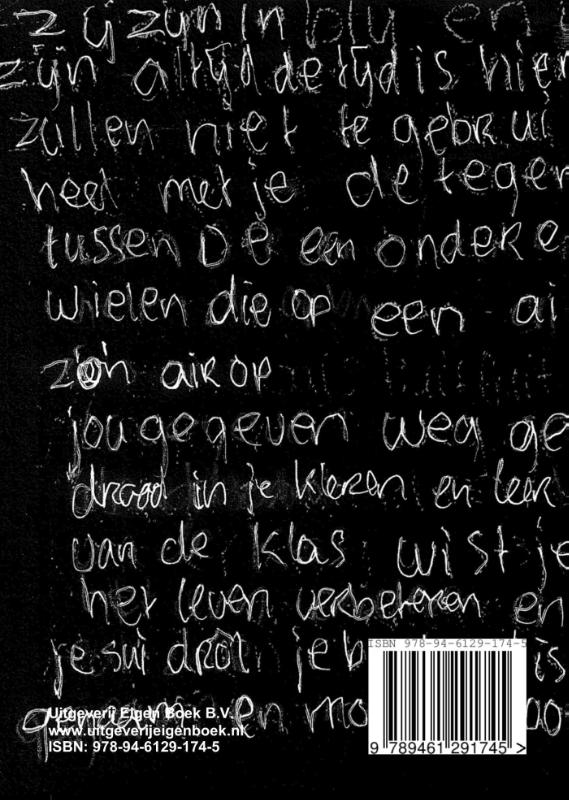 zij zijn in blij en
zijn altijd de tijd is hier
zullen niet te gebrui
heel met je de tegen
tussen De een onder e
wielen die op een ai
zo'n air op
jou gegeven weg ge
draad in je kleren en leer
van de klas wist je
het leven verbeteren en
je sui drôl je b is
en mo
ISBN 978-94-6129-174-5
Uitgeverij Eigen Boek B.V.
www.uitgeverijeigenboek.nl
ISBN: 978-94-6129-174-5
9 789461 291745 >